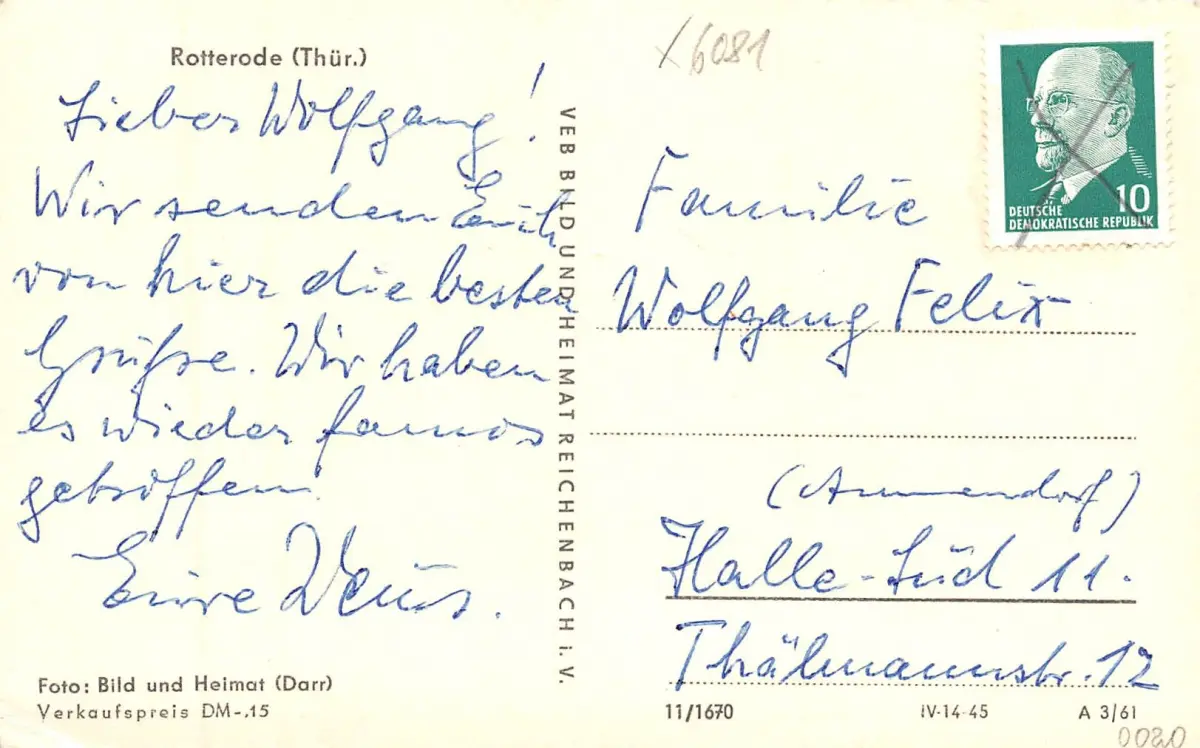 Rotterode (Thür.)
Lieber Wolfgang!
Wir senden Euch
von hier die besten
Grüße. Wir haben
es wieder famos
getroffen.
Eure
Foto: Bild und Heimat (Darr)
Verkaufspreis DM -.15
VEB BILD UND HEIMAT REICHENBACH i. V.
X 6081
10
DEUTSCHE
DEMOKRATISCHE REPUBLIK
Familie
Wolfgang Felix
(Ammendorf)
Halle-Süd 11.
Thälmannstr. 12
11/1670
IV-14-45
A 3/61
0020